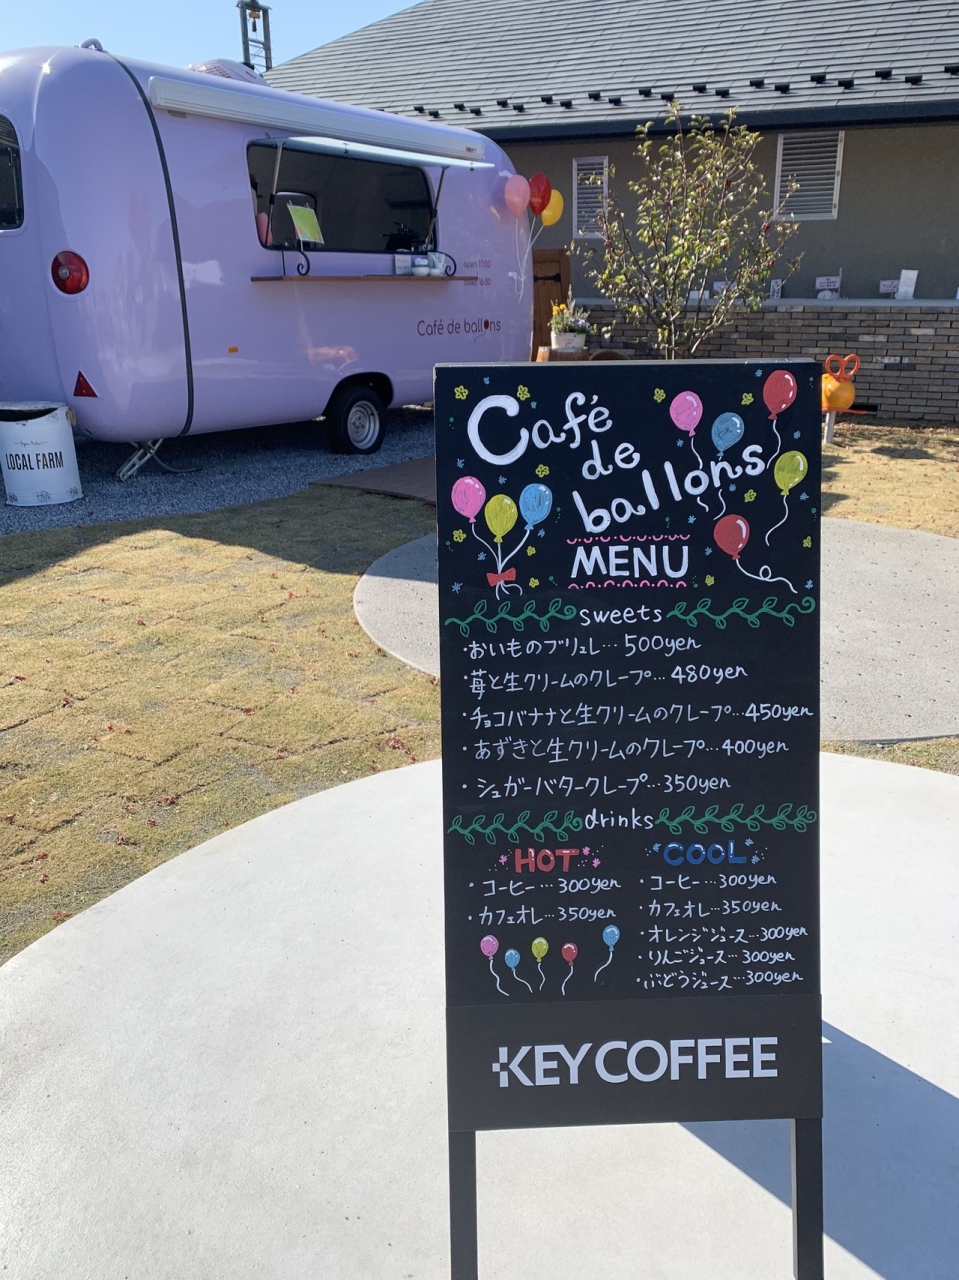 open 11:00
close 16:00
Café de ballons
LOCAL FARM
Café
de
ballons
MENU
sweets
・おいものブリュレ…500yen
・苺と生クリームのクレープ…480yen
・チョコバナナと生クリームのクレープ…450yen
・あずきと生クリームのクレープ…400yen
・シュガーバタークレープ…350yen
drinks
HOT
・コーヒー…300yen
・カフェオレ…350yen
COOL
・コーヒー…300yen
・カフェオレ…350yen
・オレンジジュース…300yen
・りんごジュース…300yen
・ぶどうジュース…300yen
KEY COFFEE